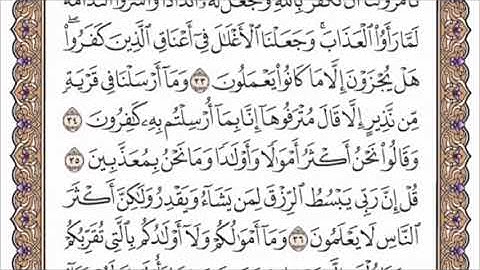 تَأْمُرُونَنَا أَن نَّكْفُرَ بِٱللَّهِ وَنَجْعَلَ لَهُۥٓ أَندَادًا وَأَسَرُّوا۟ ٱلنَّدَامَةَ
لَمَّا رَأَوُا۟ ٱلْعَذَابَ وَجَعَلْنَا ٱلْأَغْلَٰلَ فِىٓ أَعْنَاقِ ٱلَّذِينَ كَفَرُوا۟ ۖ
هَلْ يُجْزَوْنَ إِلَّا مَا كَانُوا۟ يَعْمَلُونَ ٣٣ وَمَآ أَرْسَلْنَا فِى قَرْيَةٍ
مِّن نَّذِيرٍ إِلَّا قَالَ مُتْرَفُوهَآ إِنَّا بِمَآ أُرْسِلْتُم بِهِۦ كَٰفِرُونَ ٣٤
وَقَالُوا۟ نَحْنُ أَكْثَرُ أَمْوَٰلًا وَأَوْلَٰدًا وَمَا نَحْنُ بِمُعَذَّبِينَ ٣٥
قُلْ إِنَّ رَبِّى يَبْسُطُ ٱلرِّزْقَ لِمَن يَشَآءُ وَيَقْدِرُ وَلَٰكِنَّ أَكْثَرَ
ٱلنَّاسِ لَا يَعْلَمُونَ ٣٦ وَمَآ أَمْوَٰلُكُمْ وَلَآ أَوْلَٰدُكُم بِٱلَّتِى تُقَرِّبُكُمْ